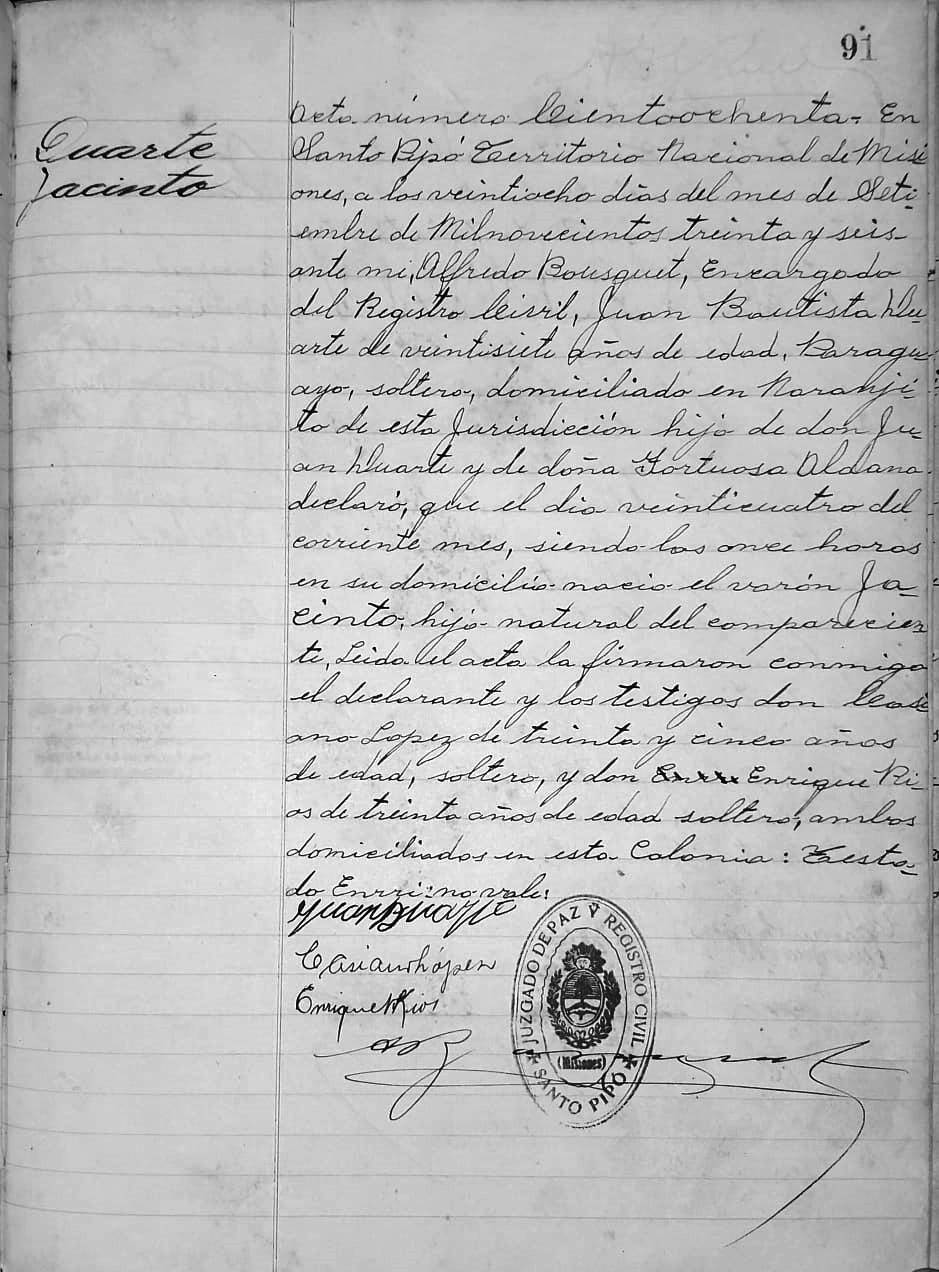 91
Duarte
Jacinto
Acta número Cientoochenta. En
Santo Pipó Territorio Nacional de Misi
ones, a los veintiocho días del mes de Seti-
embre de Milnovecientos treinta y seis
ante mi, Alfredo Bousquet, Encargado
del Registro Civil, Juan Bautista Du-
arte de veintisiete años de edad, Paragu-
ayo, soltero, domiciliado en Naranji-
to de esta Jurisdicción hijo de don Ju-
an Duarte y de doña Fortuosa Aldana
declaró, que el dia veinticuatro del
corriente mes, siendo las once horas
en su domicilio nacio el varón Ja-
cinto, hijo natural del comparecien
te, Leida el acta la firmaron conmigo
el declarante y los testigos don Casi
ano Lopez de treinta y cinco años
de edad, soltero, y don Enrique Ri-
os de treinta años de edad soltero, ambos
domiciliados en esta Colonia: Testa-
do Enrri: no vale:
Juan Duarte
Casiano López
Enrique Rios
JUZGADO DE PAZ Y REGISTRO CIVIL
(Misiones)
SANTO PIPÓ